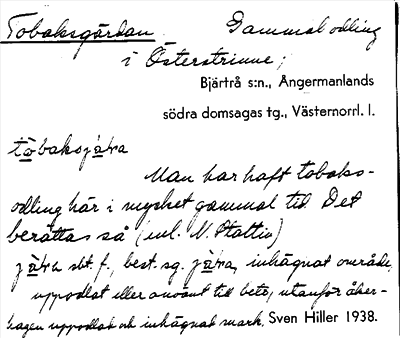 Tobaksgärdan. Gammal odling
i Österstrinne;
Bjärtrå s:n., Ångermanlands
södra domsagas tg., Västernorrl. l.
tåbaksjära
Man har haft tobaks-
odling här i mycket gammal tid. Det
berättas så (enl. N. Stattin)
jära sbt. f., best. sg. jära, inhägnat område,
uppodlat eller använt till bete, utanför åker-
hagen uppodlat och inhägnad mark. Sven Hiller 1938.